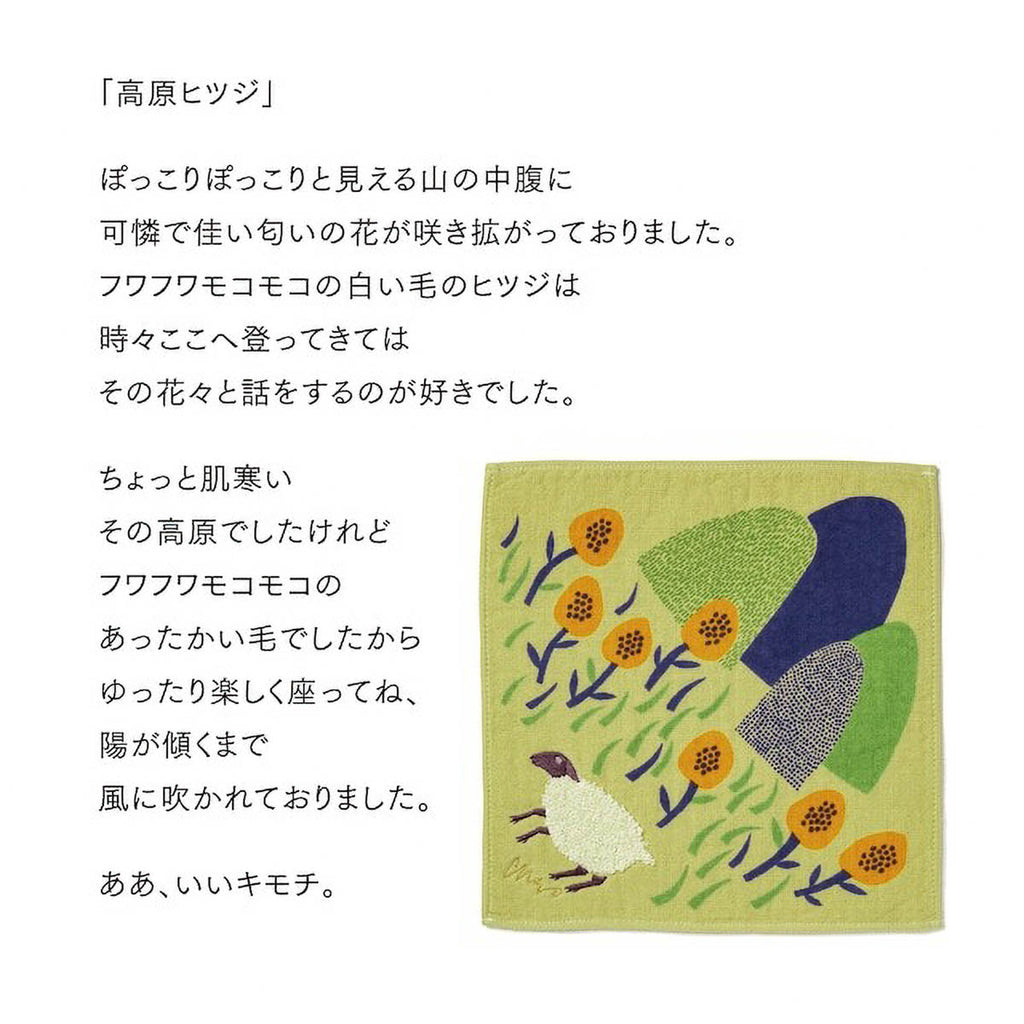 「高原ヒツジ」
ぽっこりぽっこりと見える山の中腹に
可憐で佳い匂いの花が咲き拡がっておりました。
フワフワモコモコの白い毛のヒツジは
時々ここへ登ってきては
その花々と話をするのが好きでした。
ちょっと肌寒い
その高原でしたけれど
フワフワモコモコの
あったかい毛でしたから
ゆったり楽しく座ってね、
陽が傾くまで
風に吹かれておりました。
ああ、いいキモチ。